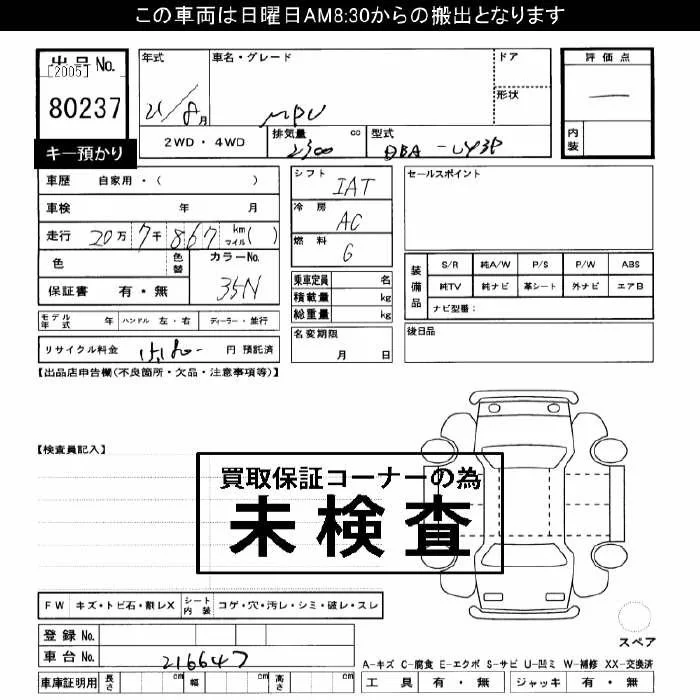 この車両は日曜日AM8:30からの搬出となります
出品No.
[2005]
80237
キー預かり
年式 21/8月
車名・グレード MPV
ドア
形状
2WD・4WD
排気量 2300 cc
型式 DBA-LY3P
評価点
―
内装
車歴 自家用・( )
車検 年 月
走行 20万7千867 km マイル( )
色 色替 カラーNo. 35N
保証書 有・無
モデル年式 年 ハンドル 左・右 ディーラー・並行
リサイクル料金 円 預託済
シフト IAT
冷房 AC
燃料 G
乗車定員 名
積載量 kg
総重量 kg
名変期限 月 日
セールスポイント
装備品
S/R 純A/W P/S P/W ABS
純TV 純ナビ 革シート 外ナビ エアB
ナビ型番:
後日品
【出品店申告欄(不良箇所・欠品・注意事項等)】
【検査員記入】
買取保証コーナーの為
未検査
FW キズ・トビ石・割レX シート内装 コゲ・穴・汚レ・シミ・破レ・スレ
登録No.
車台No. 216647
車庫証明用 長さ cm 幅 cm 高さ cm
スペア
A-キズ C-腐食 E-エクボ S-サビ U-凹ミ W-補修 XX-交換済
工具 有・無 ジャッキ 有・無